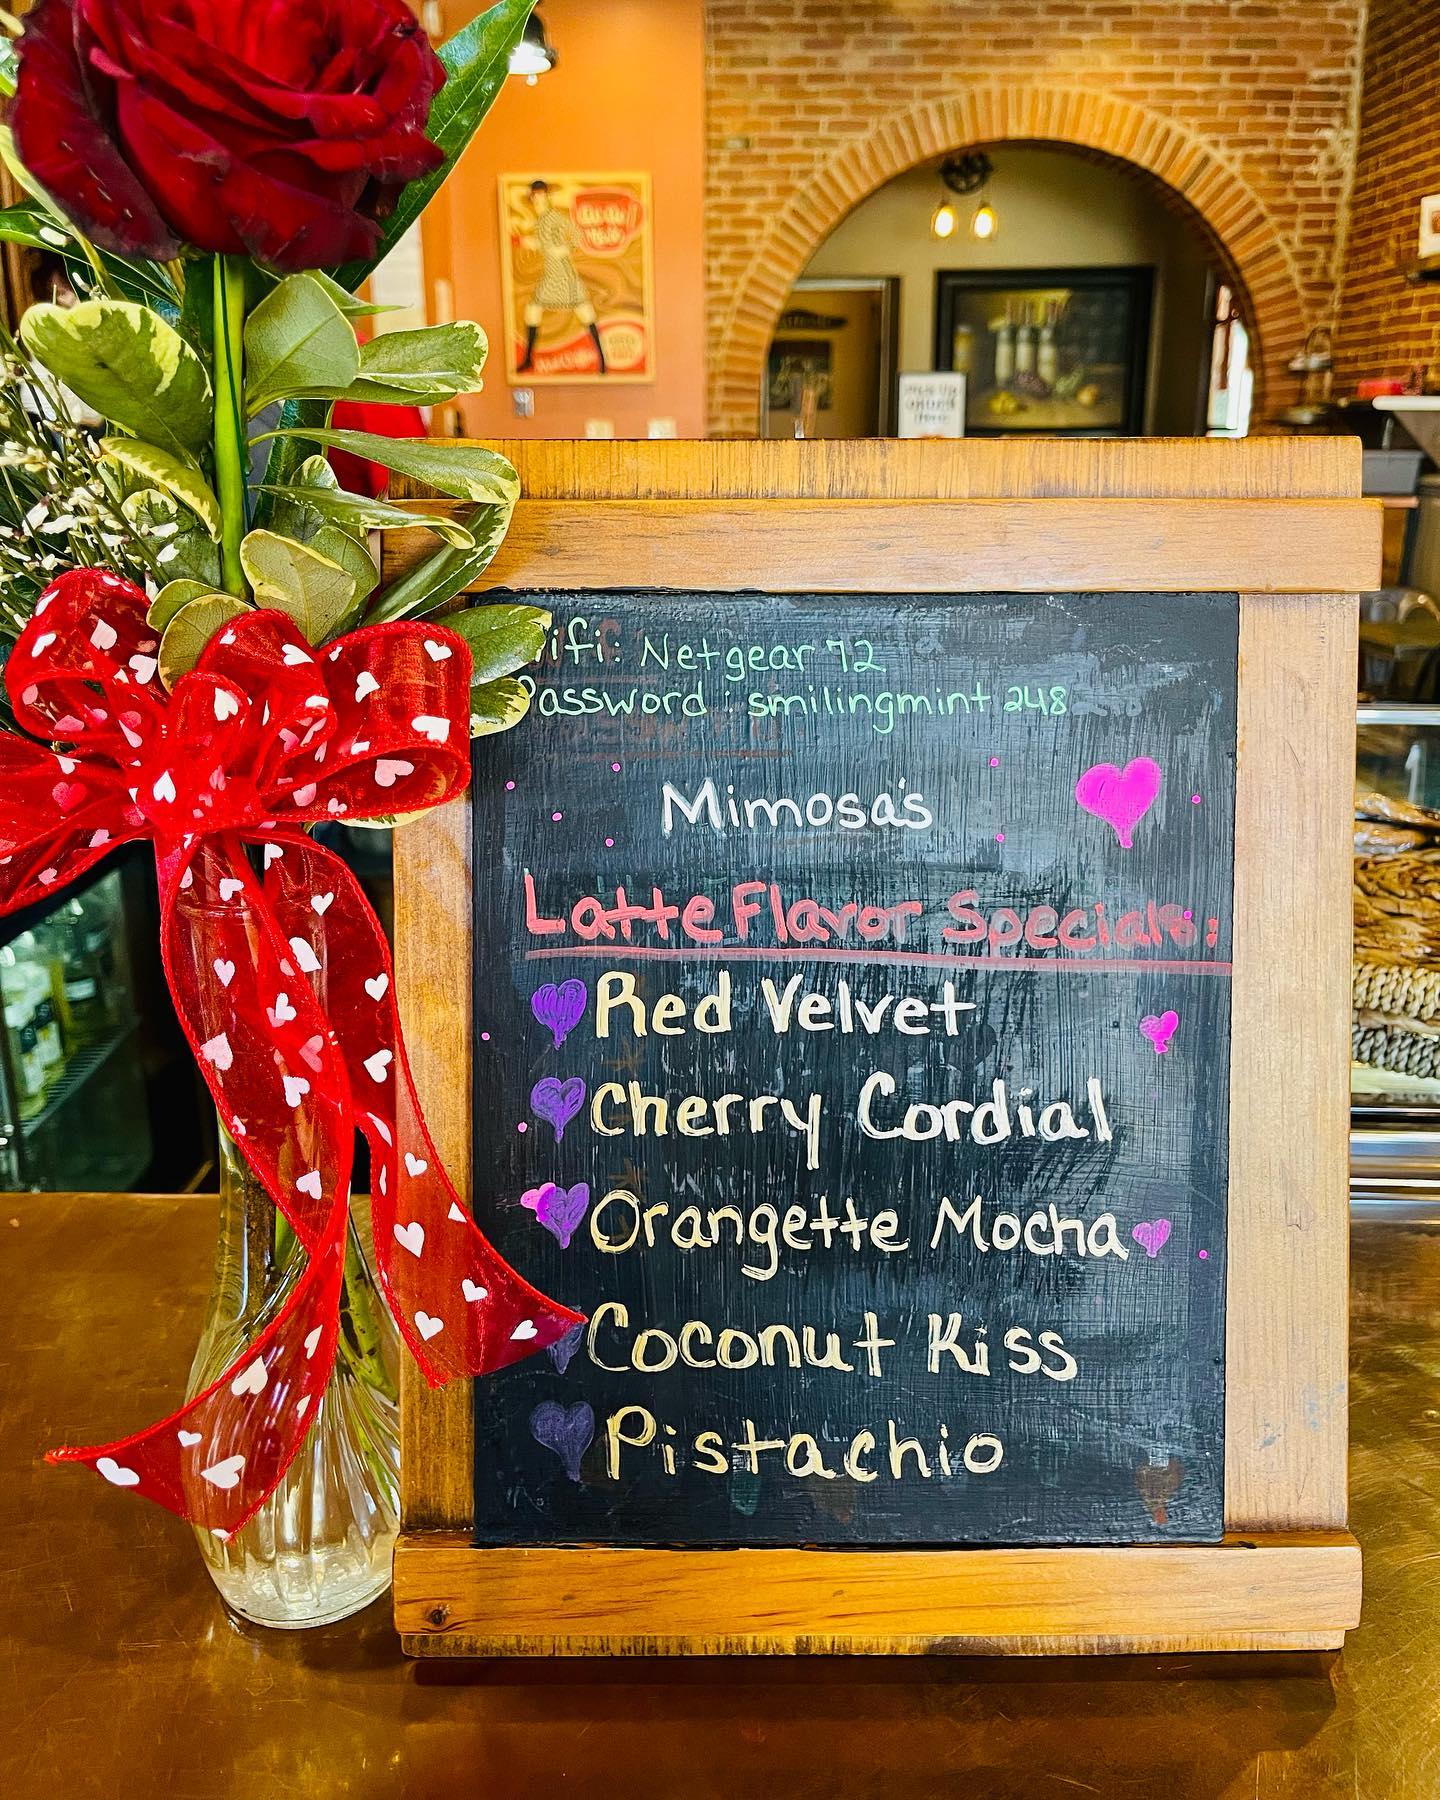 Wifi: Netgear 72
Password: smilingmint 248
Mimosa's
Latte Flavor Specials:
Red Velvet
Cherry Cordial
Orangette Mocha
Coconut Kiss
Pistachio
PICK UP
ORDER
HERE